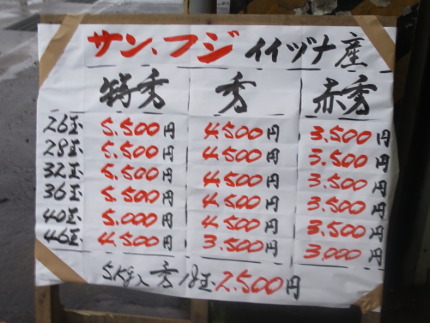 サン、フジ イイヅナ産
特秀 秀 赤秀
26玉 5.500円 4.500円 3.500円
28玉 5.500円 4.500円 3.500円
32玉 5.500円 4.500円 3.500円
36玉 5.500円 4.500円 3.500円
40玉 5.000円 4.500円 3.500円
46玉 4.500円 3.500円 3.000円
5Kg入 秀 18玉 2.500円